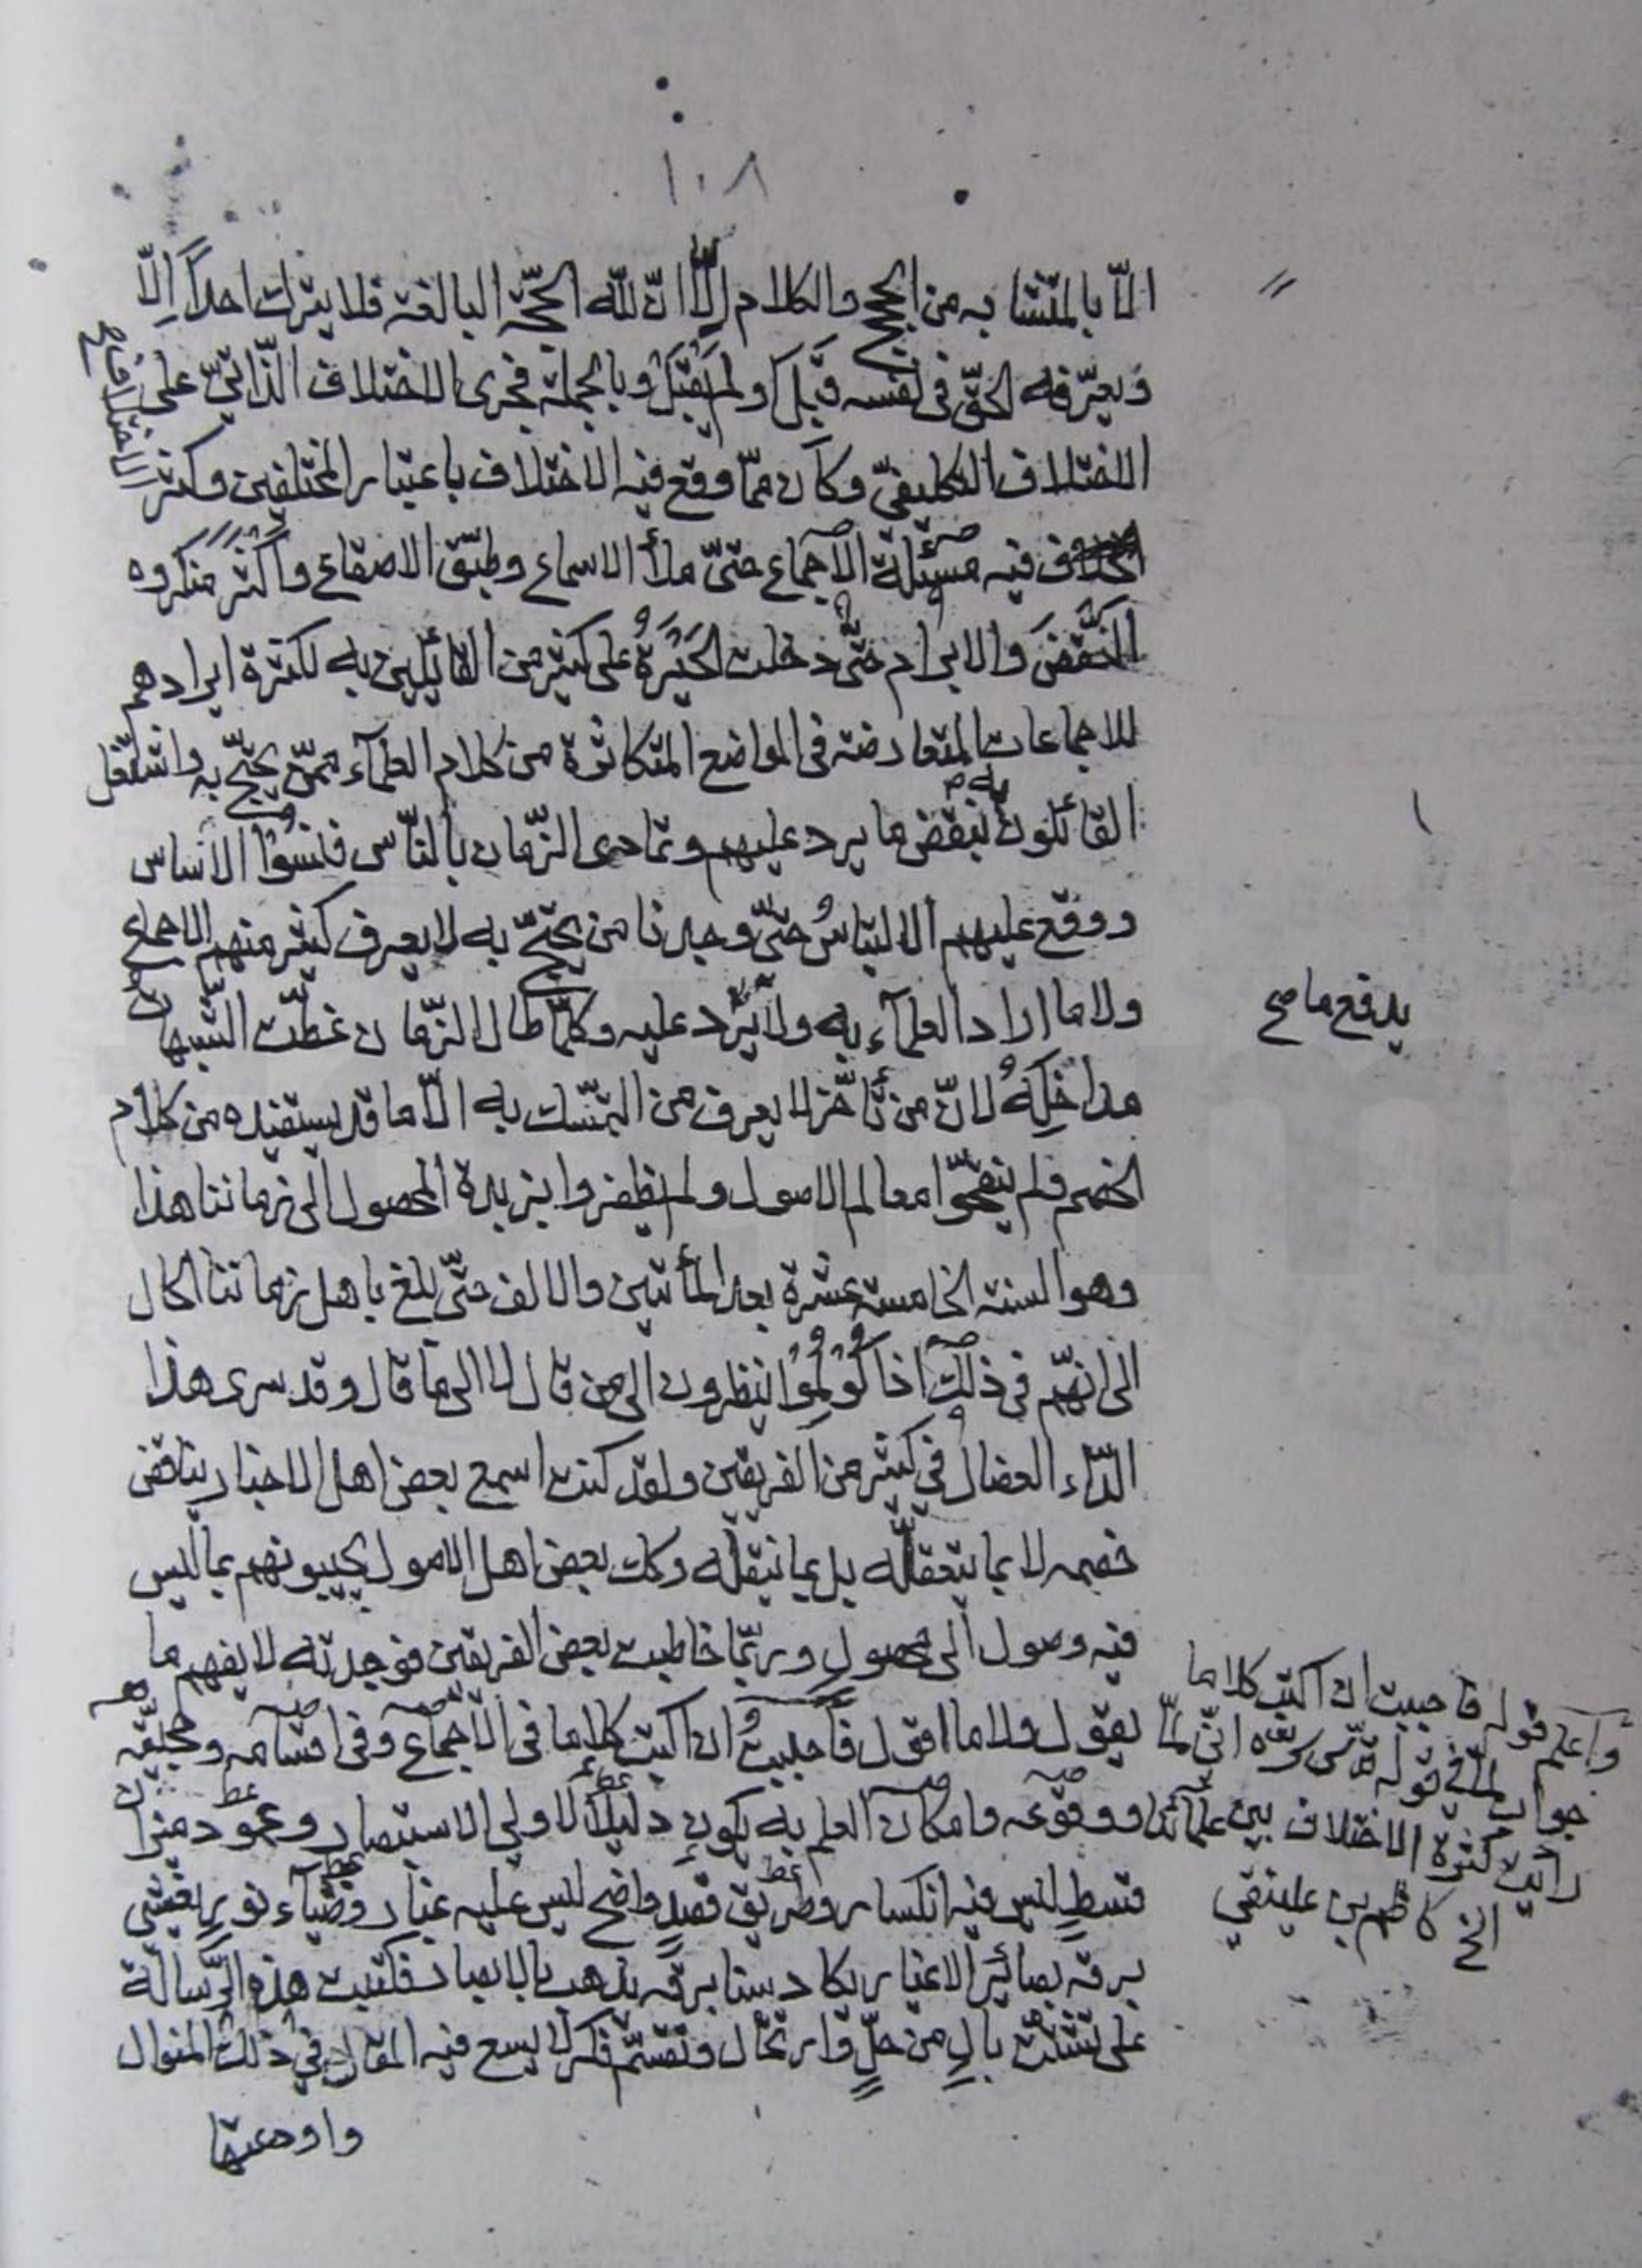 ١٠٨
الّا بالمتشابه من الحجج والكلام إلّا انّ للّه الحجّة البالغة فلا يترك احداً إلّا
ويعرّفه الحقّ فى نفسه قَبِلَ ولم يقبل وبالجملة فجرى الاختلاف الذّاتىّ على
الاختلاف التكليفىّ وكان ممّا وقع فيه الاختلاف باعتبار المختلفين وكثر
الاختلاف صح
فيه مسئلة الاجماع حتىّ ملأ الاسماع وطبّق الاصقاع واكثر منكروه
النّقضَ والابرام حتّى دخلت الحَيْرَةُ على كثير من القائلين به لكثرة ايرادهم
للاجماعات المتعارضة فى المواضع المتكاثرة من كلام العلمآء ممّن يحتجّ به واشتغل
القائلون به بنقض ما يرد عليهم وتمادى الزّمان بالنّاس فنسُوا الاساس
ووقع عليهم الالتباسُ حتّى وجدنا من يحتجّ به لا يعرف كثير منهم الاجماع
ولا ما اراد العلمآء به ولا يرد عليه وكلّما طال الزّمان غطّت الشّبهات
يدفع ما صح
مداخِلَهُ لانّ من تأخّر لا يعرف من التمسّك به الّا ما قد يستفيده من كلام
الخصم فلم ينقّحوا معالم الاصول ولم يظفروا بزبدة المحصول الى زماننا هذا
وهو السنة الخامسة عشرة بعد المأتين والالف حتّى بلغ باهل زماننا الحال
الى انهّم فى ذلك اذا كُولِمُوا ينظرون الى من قال لا الى ما قال وقد سرى هذا
الدّاء العضال فى كثير من الفريقين ولقد كنت اسمع بعض اهل الاخبار يناقض
خصمه لا بما يتعقّله بل بما ينقله وكك بعض اهل الاصول يجيبونهم بما ليس
فيه وصول الى محصولٍ وربّما خاطبت بعض الفريقين فوجدته لا يفهم ما
يقول ولا ما اقول فأحببتُ ان اكتب كلاما فى الاجماع وفى اقسامه وحجيّته
ووقوعه وامكان العلم به يكون دليلاً لاولى الاستبصار وعمود ميزان
قسطٍ ليس فيه انكسار وطريق قصدٍ واضح ليس عليه غبار وضيآء نورٍ يغشى
برقه بصائر الاغيار يكاد سنا برقه يذهب بالابصار فكتبت هذه الرّسالة
على تشتّت بالٍ من حلٍّ وارتحال وتقسّم فكر لا يسع فيه المقال فى ذلك المنوال
واودعتها
واعلم قوله فاحببت ان اكتب كلاما
جواب لمّا فى قوله قدّس سرّه انّى لمّا
رايت كثرة الاختلاف بين علمآئنا
الخ كاظم بن علينقى